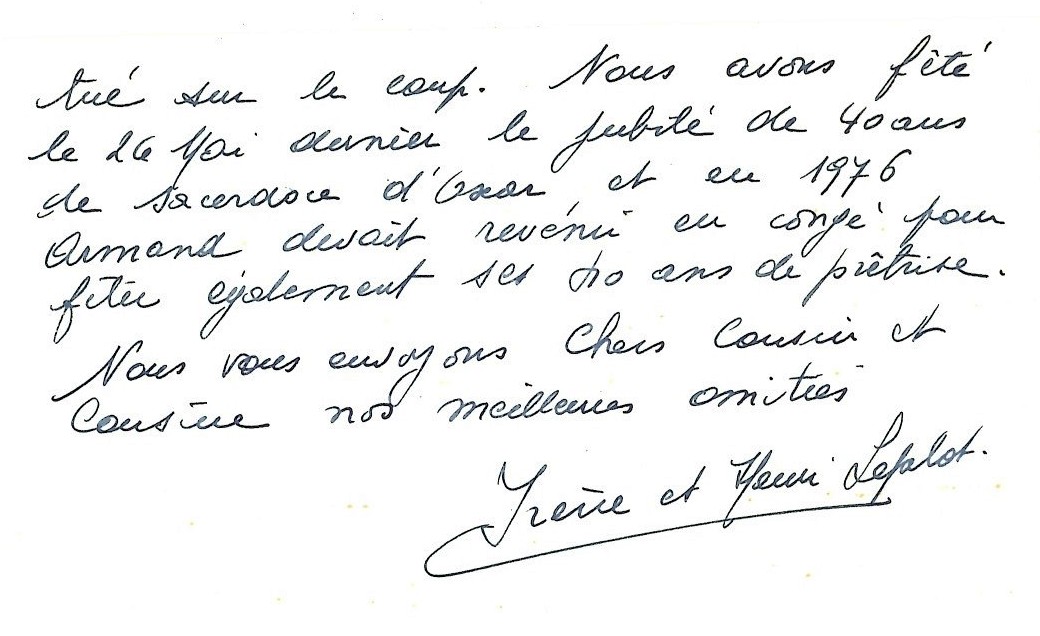 tué sur le coup. Nous avons fêté
le 26 Mai dernier le jubilé de 40 ans
de sacerdoce d'Oscar et en 1976
Armand devait revenir en congé pour
fêter également ses 40 ans de prêtrise.
Nous vous envoyons Chers Cousin et
Cousine nos meilleures amitiés
Irène et Henri